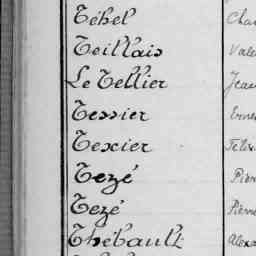 Téhel Cha
Teillais Vale
Le Tellier Jean
Tessier Erne
Texier Félix
Tezé Pierr
Tezé Pierre
Thébault Alexa